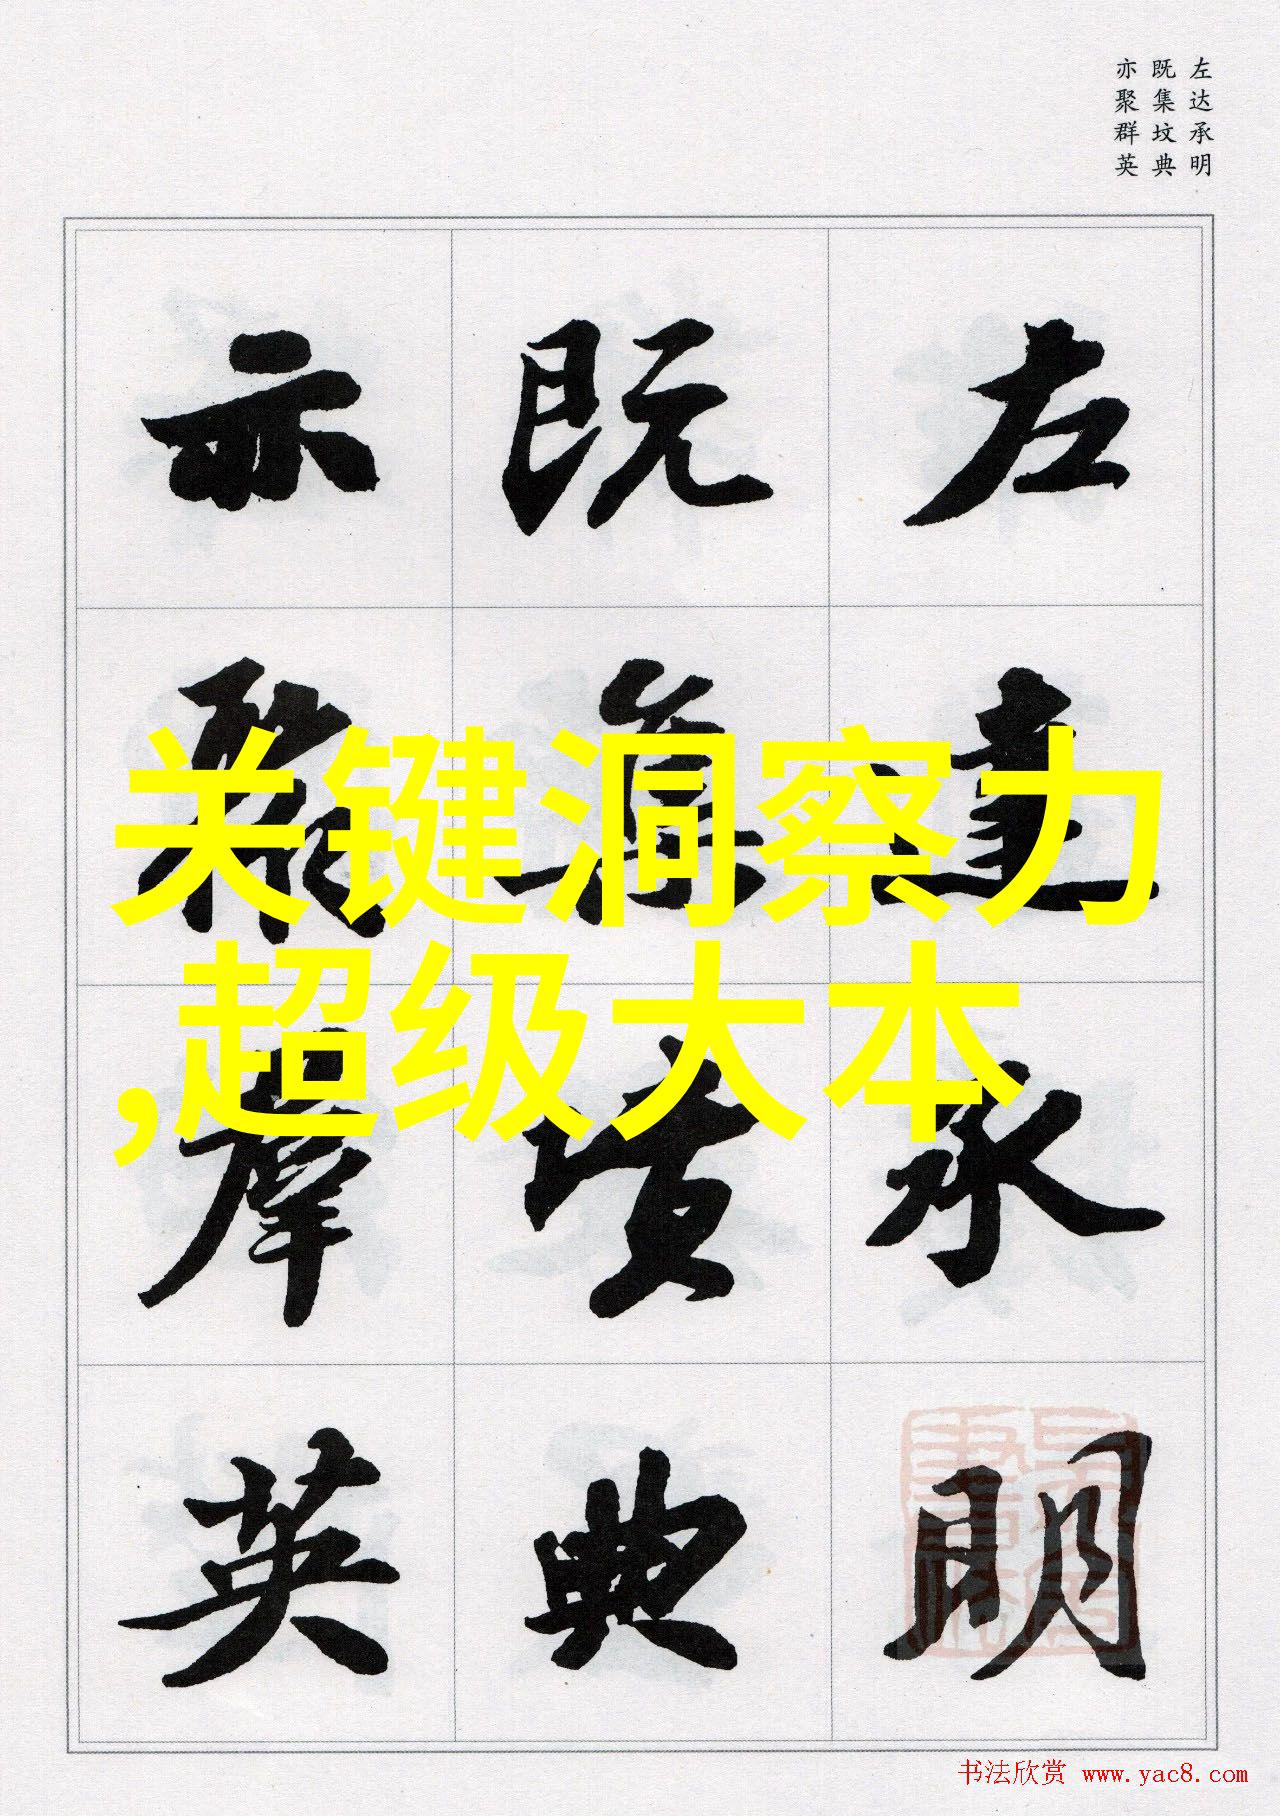 左达承明
既集坟典
亦聚群英
左達承明
既集墳典
亦聚群英
关键洞察力
,超级大本
书法欣赏 www.yac8.com